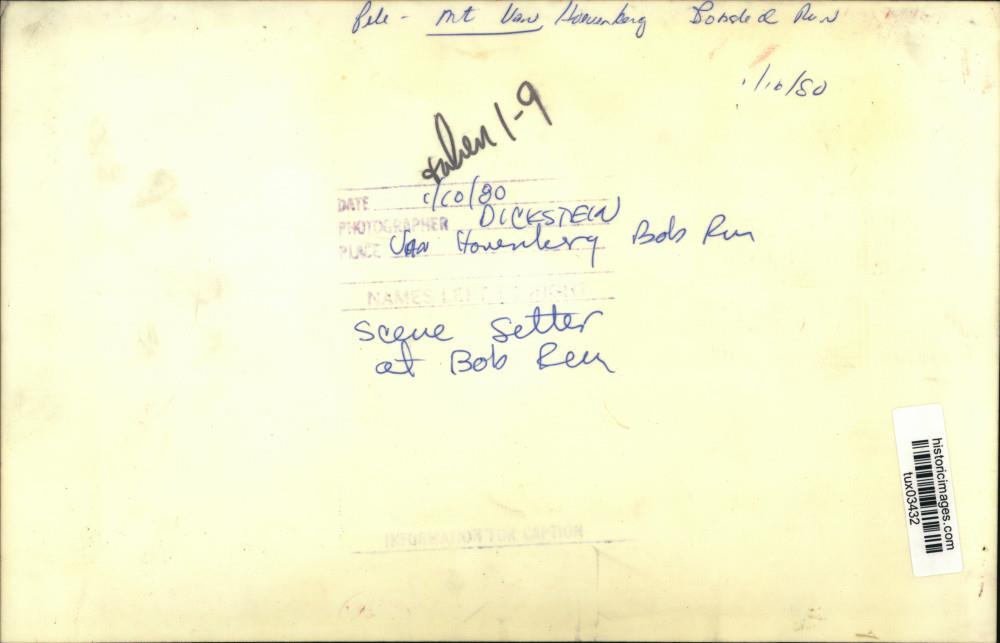 File - Mt Van Hoevenberg Bobsled Run
1/10/80
taken 1-9
DATE 1/10/80
PHOTOGRAPHER DICKSTEIN
PLACE Van Hovenberg Bob Run
NAMES LEFT TO RIGHT
Scene Setter
at Bob Run
INFORMATION FOR CAPTION
historicimages.com
tux03432